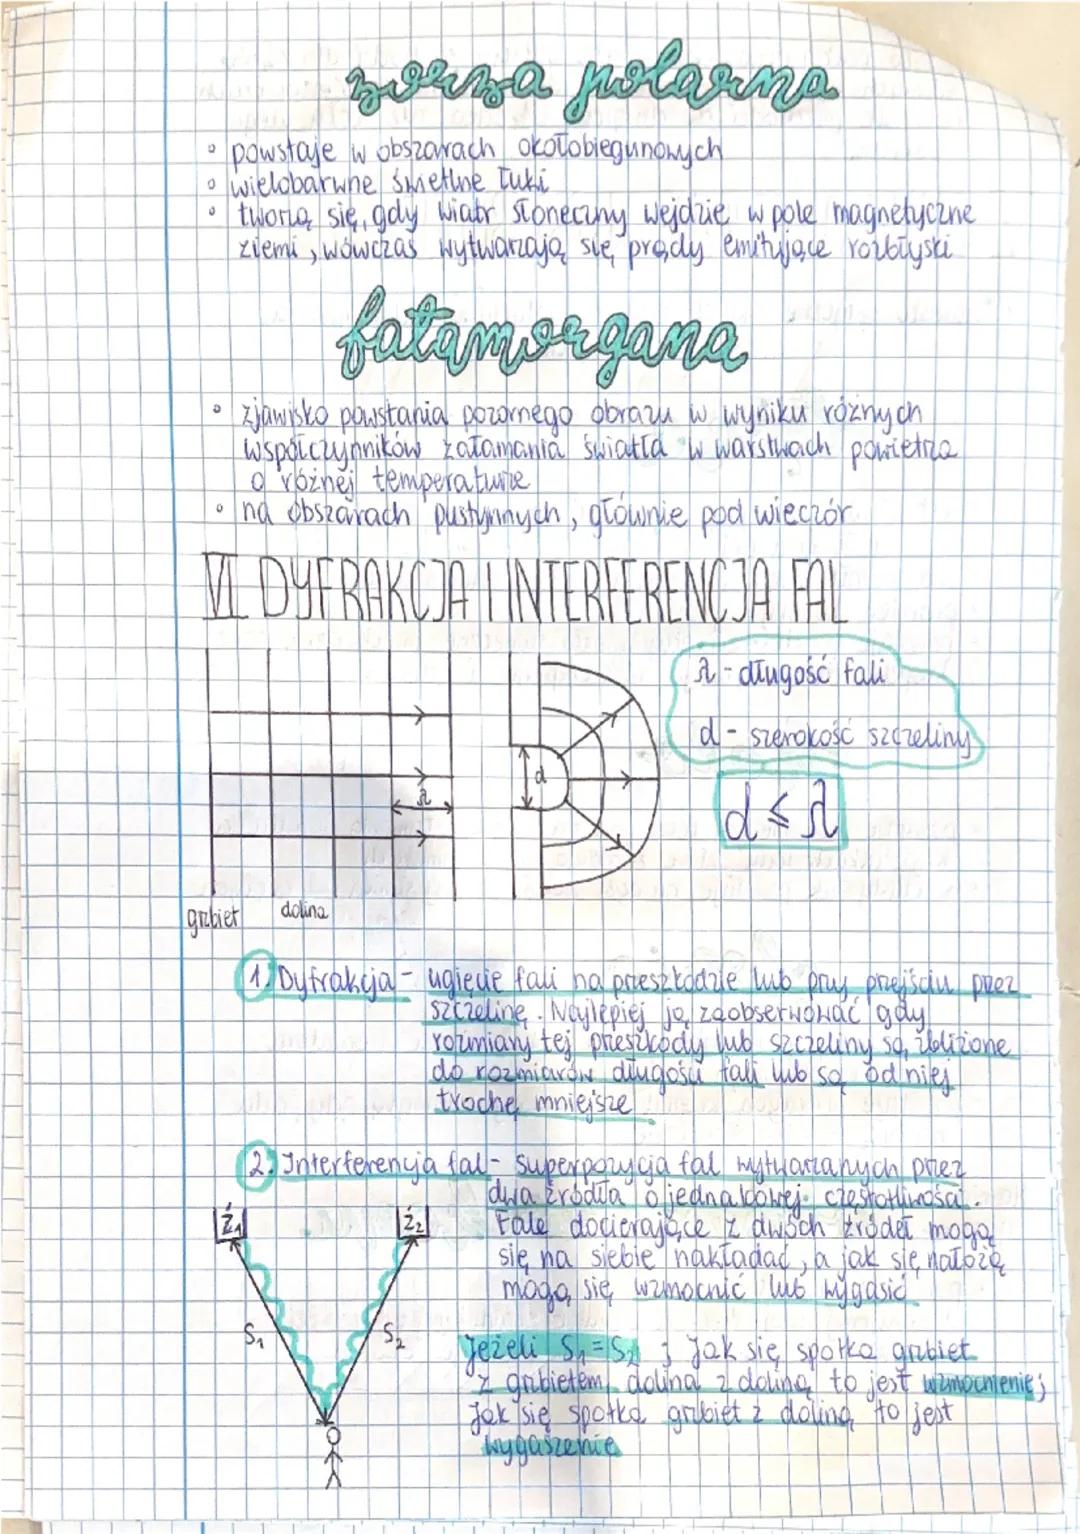 zorza polarna
° powstaje w obszarach okołobiegunowych
° wielobarwne świetlne łuki
° tworzą się, gdy wiatr słoneczny wejdzie w pole magnetyczne
ziemi, wówczas wytwarzają się prądy emitujące rozbłyski
fatamorgana
° zjawisko powstania pozornego obrazu w wyniku różnych
współczynników załamania światła w warstwach powietrza
o różnej temperaturze
° na obszarach pustynnych, głównie pod wieczór
VI DYFRAKCJA I INTERFERENCJA FAL
λ - długość fali
d - szerokość szczeliny
d
λ
d ≤ λ
grzbiet dolina
1. Dyfrakcja - ugięcie fali na przeszkodzie lub przy przejściu przez
szczelinę. Najlepiej ją zaobserwować gdy
rozmiary tej przeszkody lub szczeliny są zbliżone
do rozmiarów długości fali lub są od niej
trochę mniejsze
2. Interferencja fal - superpozycja fal wytwarzanych przez
dwa źródła o jednakowej częstotliwości.
Fale docierające z dwóch źródeł mogą
się na siebie nakładać, a jak się nałożą
mogą się wzmocnić lub wygasić
Ź1 Ź2
S1 S2
Jeżeli S1 = S2 ; Jak się spotka grzbiet
z grzbietem, dolina z doliną to jest wzmocnienie;
Jak się spotka grzbiet z doliną to jest
wygaszenie